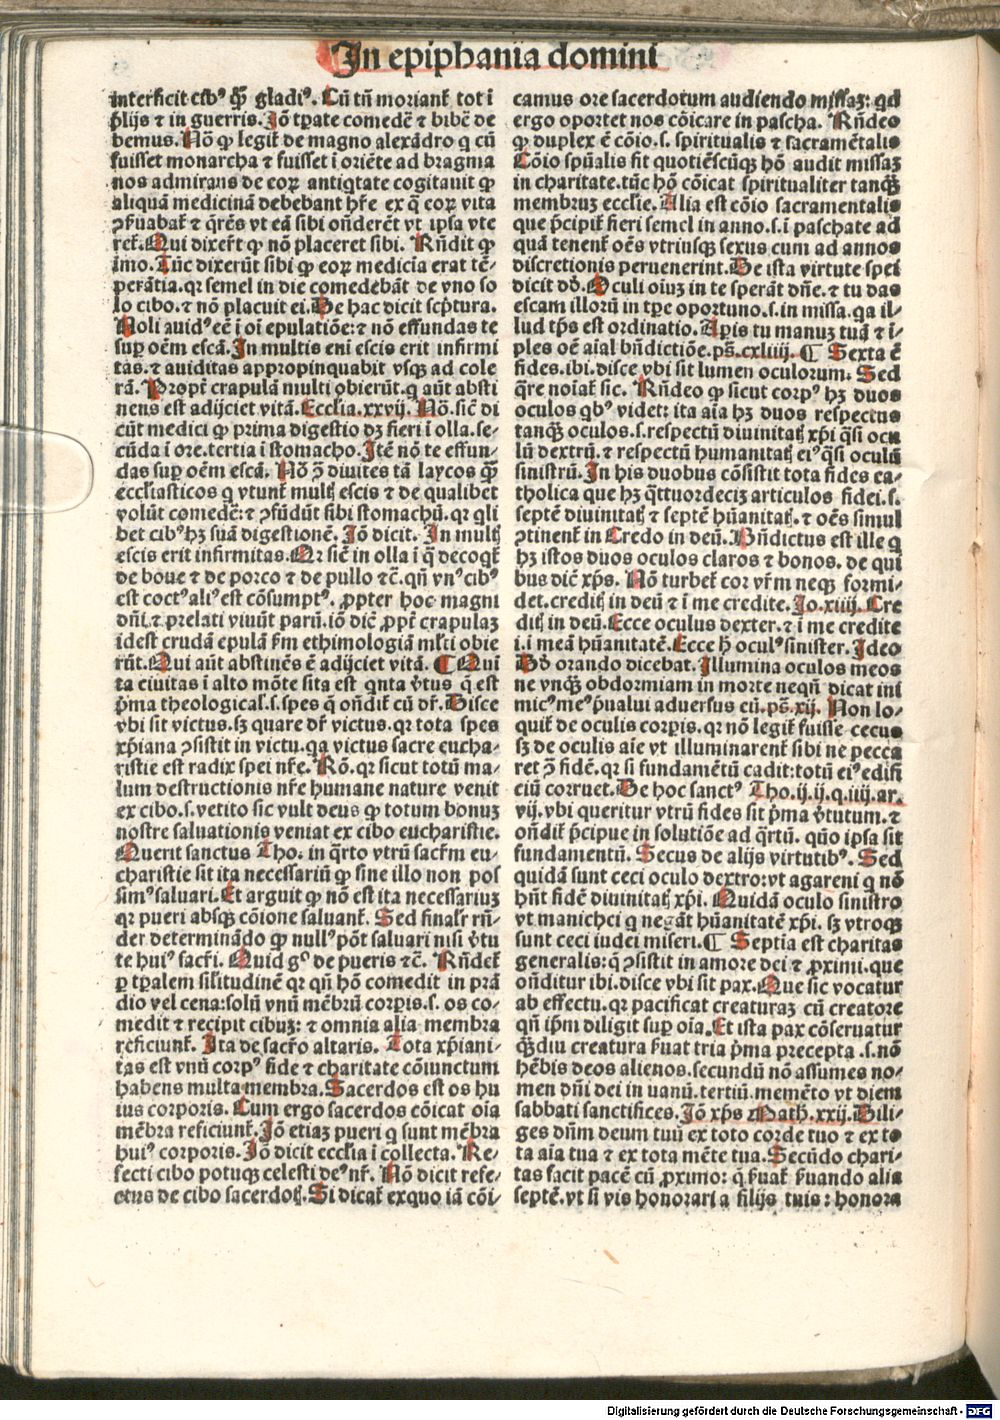 In epiphania domini
interficit cibꝰ qͣꝫ gladiꝰ. Cū tn̄ moriant᷑ tot ī
p̄lijs ⁊ in guerris. Iō tꝑate comedē ⁊ bibē de
bemus. Nō ꝙ legit᷑ de magno alexādro q cū
fuisset monarcha ⁊ fuisset ī oriēte ad bragma
nos admirans de eoꝝ antiqtate cogitauit ꝙ
aliquā medicinā debebant hr̄e ex q̄ eoꝝ vita
ꝯẜuabat᷑ ⁊ q̄rēs vt eā sibi on̄derēt vt ipsa vte
ret᷑. Qui dixer̄t ꝙ nō placeret sibi. Rn̄dit ꝙ
imo. Tūc dixerūt sibi ꝙ eoꝝ medicīa erat tē-
perātia. qꝛ semel in die comedebāt de vno so
lo cibo. ⁊ nō placuit ei. De hac dicit scp̄tura.
Noli auidꝰ eē ī oī epulatiōe: ⁊ nō effundas te
suꝑ oēm escā. In multis eni escis erit infirmi
tas. ⁊ auiditas appropinquabit vsqꝫ ad cole
rā. Propt̄ crapulā multi obierūt. q aūt absti
nens est adijciet vitā. Ecclīa. xxvij. Nō. sic̄ di
cūt medici ꝙ prima digestio dꝫ fieri ī olla. se-
cūda ī ore. tertia ī stomacho. Itē nō te effun-
das suꝑ oēm escā. Nō ꝯ̄ diuites tā laycos qͣꝫ
eccl̄iasticos q vtunt᷑ multꝭ escis ⁊ de qualibet
volūt comedē: ⁊ ꝯfūdūt sibi stomachū. qꝛ qli
bet cibꝰ hꝫ suā digestionē. Iō dicit. In multꝭ
escis erit infirmitas. Qꝛ sic̄ in olla ī q̄ decoqt᷑
de boue ⁊ de porco ⁊ de pullo ⁊c̄. qn̄ vnꝰ cibꝰ
est coctꝰ aliꝰ est cōsumptꝰ. ꝓpter hoc magni
dn̄i ⁊ prelati viuūt parū. iō dic̄ ꝓpt̄ crapulaꝫ
idest crudā epulā ẜm ethimologiā ml̄ti obie
rūt. Qui aūt abstinēs ē adijciet vitā. ¶ Qui
ta ciuitas ī alto mōte sita est qnta v̄tus q̄ est
p̄ma theological. s. spes q̄ on̄dit᷑ cū dr̄. Disce
vbi sit victus. sꝫ quare dr̄ victus. qꝛ tota spes
xp̄iana ꝯsistit in victu. qa victus sacre eucha-
ristie est radix spei nr̄e. Rō. qꝛ sicut totū ma-
lum destructionis nr̄e humane nature venit
ex cibo. s. vetito sic vult deus ꝙ totum bonuꝫ
nostre saluationis veniat ex cibo eucharistie.
Querit sanctus Tho. in q̄rto vtrū sacr̄m eu-
charistie sit ita necessariū ꝙ sine illo non pos
simꝰ saluari. Et arguit ꝙ nō est ita necessariuꝫ
qꝛ pueri absqꝫ cōione saluant᷑. Sed final̄r rn̄-
der determinādo ꝙ nullꝰ pōt saluari nisi v̄tu
te huiꝰ sacr̄i. Quid gͦ de pueris ⁊c̄. Rn̄det᷑
ꝑ tꝑalem sil̄itudinē qꝛ qn̄ hō comedit in prā
dio vel cena: solū vnū mēbrū corꝑis. s. os co-
medit ⁊ recipit cibuꝫ: ⁊ omnia alia membra
reficiunt᷑. Ita de sacr̄o altaris. Tota xp̄iani-
tas est vnū corpꝰ fide ⁊ charitate cōiunctum
habens multa membra. Sacerdos est os hu
ius corporis. Cum ergo sacerdos cōicat oīa
mēbra reficiunt᷑. Iō etiaꝫ pueri q sunt mēbra
huiꝰ corporis. Iō dicit eccl̄ia ī collecta. Re-
fecti cibo potuqꝫ celesti deꝰ nr̄. Nō dicit refe-
ctus de cibo sacerdotꝭ. Si dicat᷑ exquo iā cōi-
camus ore sacerdotum audiendo missaꝫ: qd
ergo oportet nos cōicare in pascha. Rn̄deo
ꝙ duplex ē cōio. s. spiritualis ⁊ sacramētalis
Cōio spūalis fit quotiēscūqꝫ hō audit missaꝫ
in charitate. tūc hō cōicat spiritualiter tanqͣꝫ
membruꝫ eccl̄ie. Alia est cōio sacramentalis
que p̄cipit᷑ fieri semel in anno. s. ī paschate ad
quā tenent᷑ oēs vtriusqꝫ sexus cum ad annos
discretionis peruenerint. De ista virtute spei
dicit dd̄. Oculi oiuꝫ in te sperāt dn̄e. ⁊ tu das
escam illorū in tꝑe oportuno. s. in missa. qa il-
lud tp̄s est ordinatio. Aꝑis tu manuꝫ tuā ⁊ ī-
ples oē aīal bn̄dictiōe. ps̄. cxliiij. ¶ Sexta ē
fides. ibi. disce vbi sit lumen oculorum. Sed
q̄re noīat᷑ sic. Rn̄deo ꝙ sicut corpꝰ hꝫ duos
oculos qbꝰ videt: ita aīa hꝫ duos respectus
tanqͣꝫ oculos. s. respectū diuinitatꝭ xp̄i q̄si ocu
lū dextrū. ⁊ respectū humanitatꝭ eiꝰ q̄si oculū
sinistrū. In his duobus cōsistit tota fides ca-
tholica que hꝫ q̄ttuordeciꝫ articulos fidei. s.
septē diuinitatꝭ ⁊ septē hūanitatꝭ. ⁊ oēs simul
ꝯtinent᷑ in Credo in deū. Bn̄dictus est ille q
hꝫ istos duos oculos claros ⁊ bonos. de qui
bus dic̄ xp̄s. Nō turbet᷑ cor vr̄m neqꝫ formi-
det. creditꝭ in deū ⁊ ī me credite. Io. xiiij. Cre
ditꝭ in deū. Ecce oculus dexter. ⁊ ī me credite
i. ī meā hūanitatē. Ecce h̄ oculꝰ sinister. Ideo
Dd̄ orando dicebat. Illumina oculos meos
ne vnqͣꝫ obdormiam in morte neqn̄ dicat ini
micꝰ meꝰ p̄ualui aduersus eū. ps̄. xij. Non lo-
quit᷑ de oculis corꝑis. qꝛ nō legit᷑ fuisse cecus
sꝫ de oculis aīe vt illuminarent᷑ sibi ne pecca
ret ꝯ̄ fidē. qꝛ si fundamētū cadit: totū eiꝰ edifi
ciū corruet. De hoc sanctꝰ Tho. ij. ij. q. iiij. ar.
vij. vbi queritur vtrū fides sit p̄ma v̄tutum. ⁊
on̄dit᷑ p̄cipue in solutiōe ad q̄rtū. quō ipsa sit
fundamentū. Secus de alijs virtutibꝰ. Sed
quidā sunt ceci oculo dextro: vt agareni q nō
hn̄t fidē diuinitatꝭ xp̄i. Quidā oculo sinistro
vt manichei q negāt hūanitatē xp̄i. sꝫ vtroqꝫ
sunt ceci iudei miseri. ¶ Septīa est charitas
generalis: q̄ ꝯsistit in amore dei ⁊ ꝓximi. que
on̄ditur ibi. disce vbi sit pax. Que sic vocatur
ab effectu. qꝛ pacificat creaturaꝫ cū creatore
qn̄ ip̄m diligit suꝑ oīa. Et ista pax cōseruatur
qͣꝫdiu creatura ẜuat tria p̄ma precepta. s. nō
hēbis deos alienos. secundū nō assumes no-
men dn̄i dei in uanū. tertiū. memēto vt diem
sabbati sanctifices. Iō xp̄s Math̄. xxij. Dili-
ges dn̄m deum tuū ex toto corde tuo ⁊ ex to
ta aīa tua ⁊ ex tota mēte tua. Secūdo chari-
tas facit pacē cū ꝓximo: q̄ ẜuat᷑ ẜuando alia
septē. vt si vis honorari a filijs tuis: honora
Digitalisierung gefördert durch die Deutsche Forschungsgemeinschaft - DFG